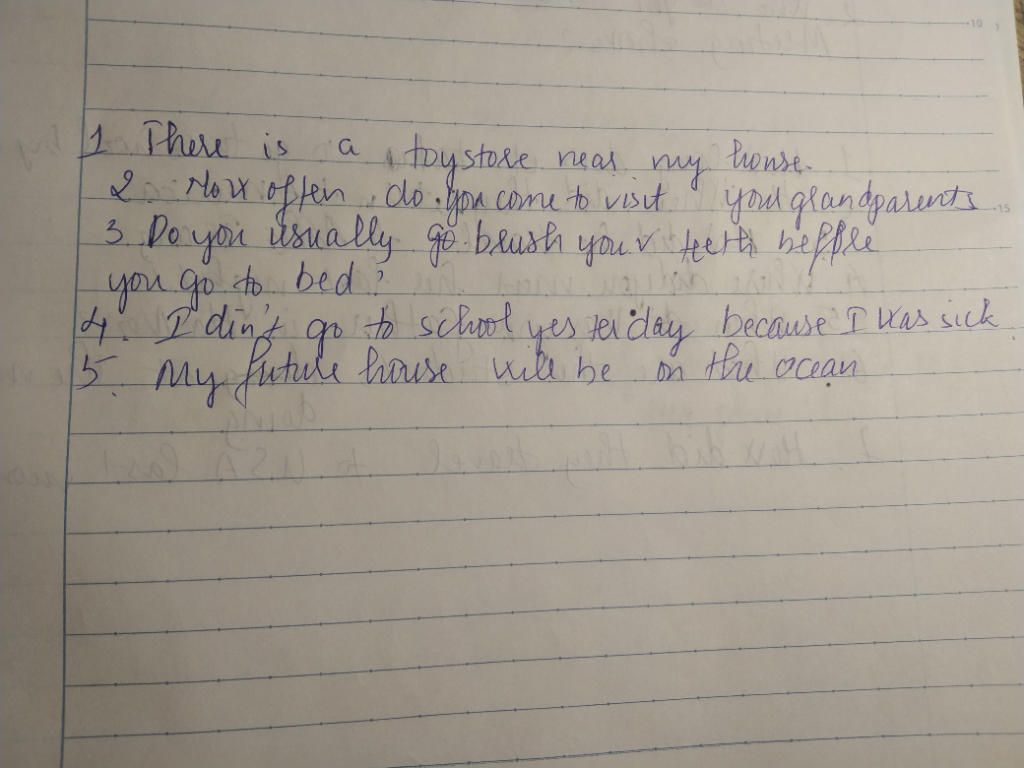 1 There is a toystore near my house.
2. How often do you come to visit your grandparents
3. Do you usually go brush your teeth beffre
you go to bed?
4. I din't go to school yesterday because I was sick
5. My future house will be on the ocean